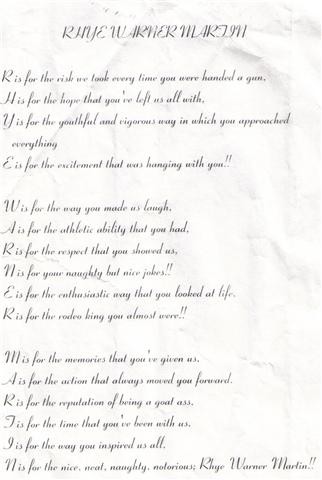 RHYE WARNER MARTIN
R is for the risk we took every time you were handed a gun,
H is for the hope that you've left us all with,
Y is for the youthful and vigorous way in which you approached
everything
E is for the excitement that was hanging with you!!
W is for the way you made us laugh,
A is for the athletic ability that you had,
R is for the respect that you showed us,
N is for your naughty but nice jokes!!
E is for the enthusiastic way that you looked at life,
R is for the rodeo king you almost were!!
M is for the memories that you've given us,
A is for the action that always moved you forward.
R is for the reputation of being a goat ass,
T is for the time that you've been with us,
I is for the way you inspired us all,
N is for the nice, neat, naughty, notorious; Rhye Warner Martin!!